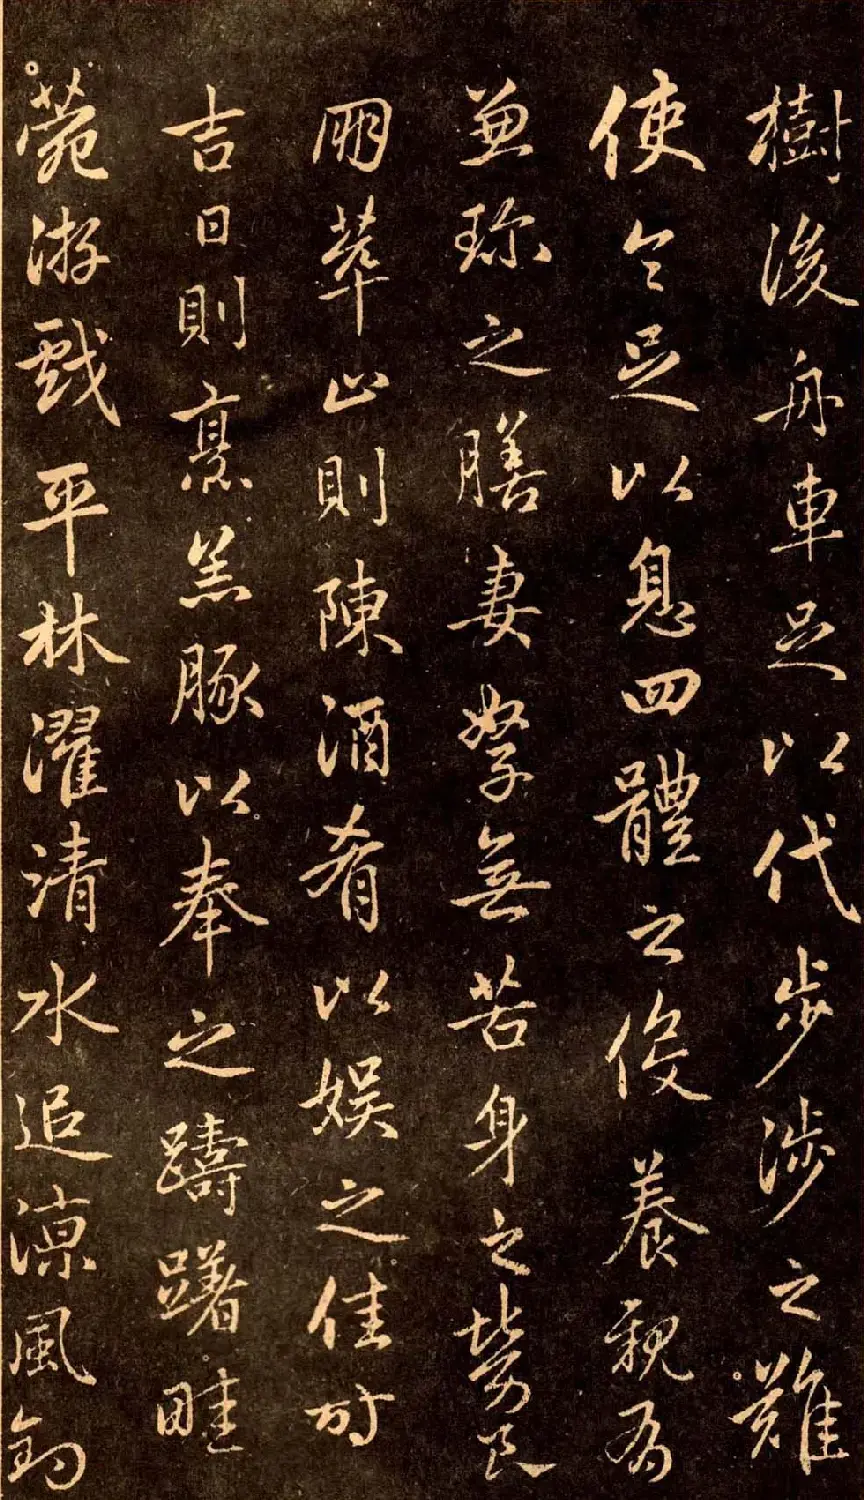 樹後舟車足以代步涉之難
使令足以息四體之役養親有
兼珍之膳妻孥無苦身之勞良
朋萃止則陳酒肴以娛之佳時
吉日則烹羔豚以奉之躊躇畦
菀游戲平林濯清水追涼風釣